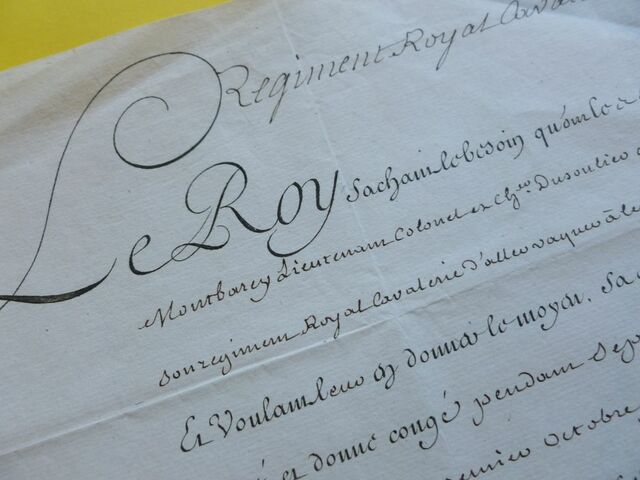 Regiment Royal Caval
Le Roy Sachant le besoin qu'ont le S.
Montbarey Lieutenant Colonel et Ch.er Dusoulier
son regiment Royal Cavalerie d'aller vaquer à le
Et Voulant leur en donner le moyen, Sa
et donne congé pendant Sept
dernier octobre